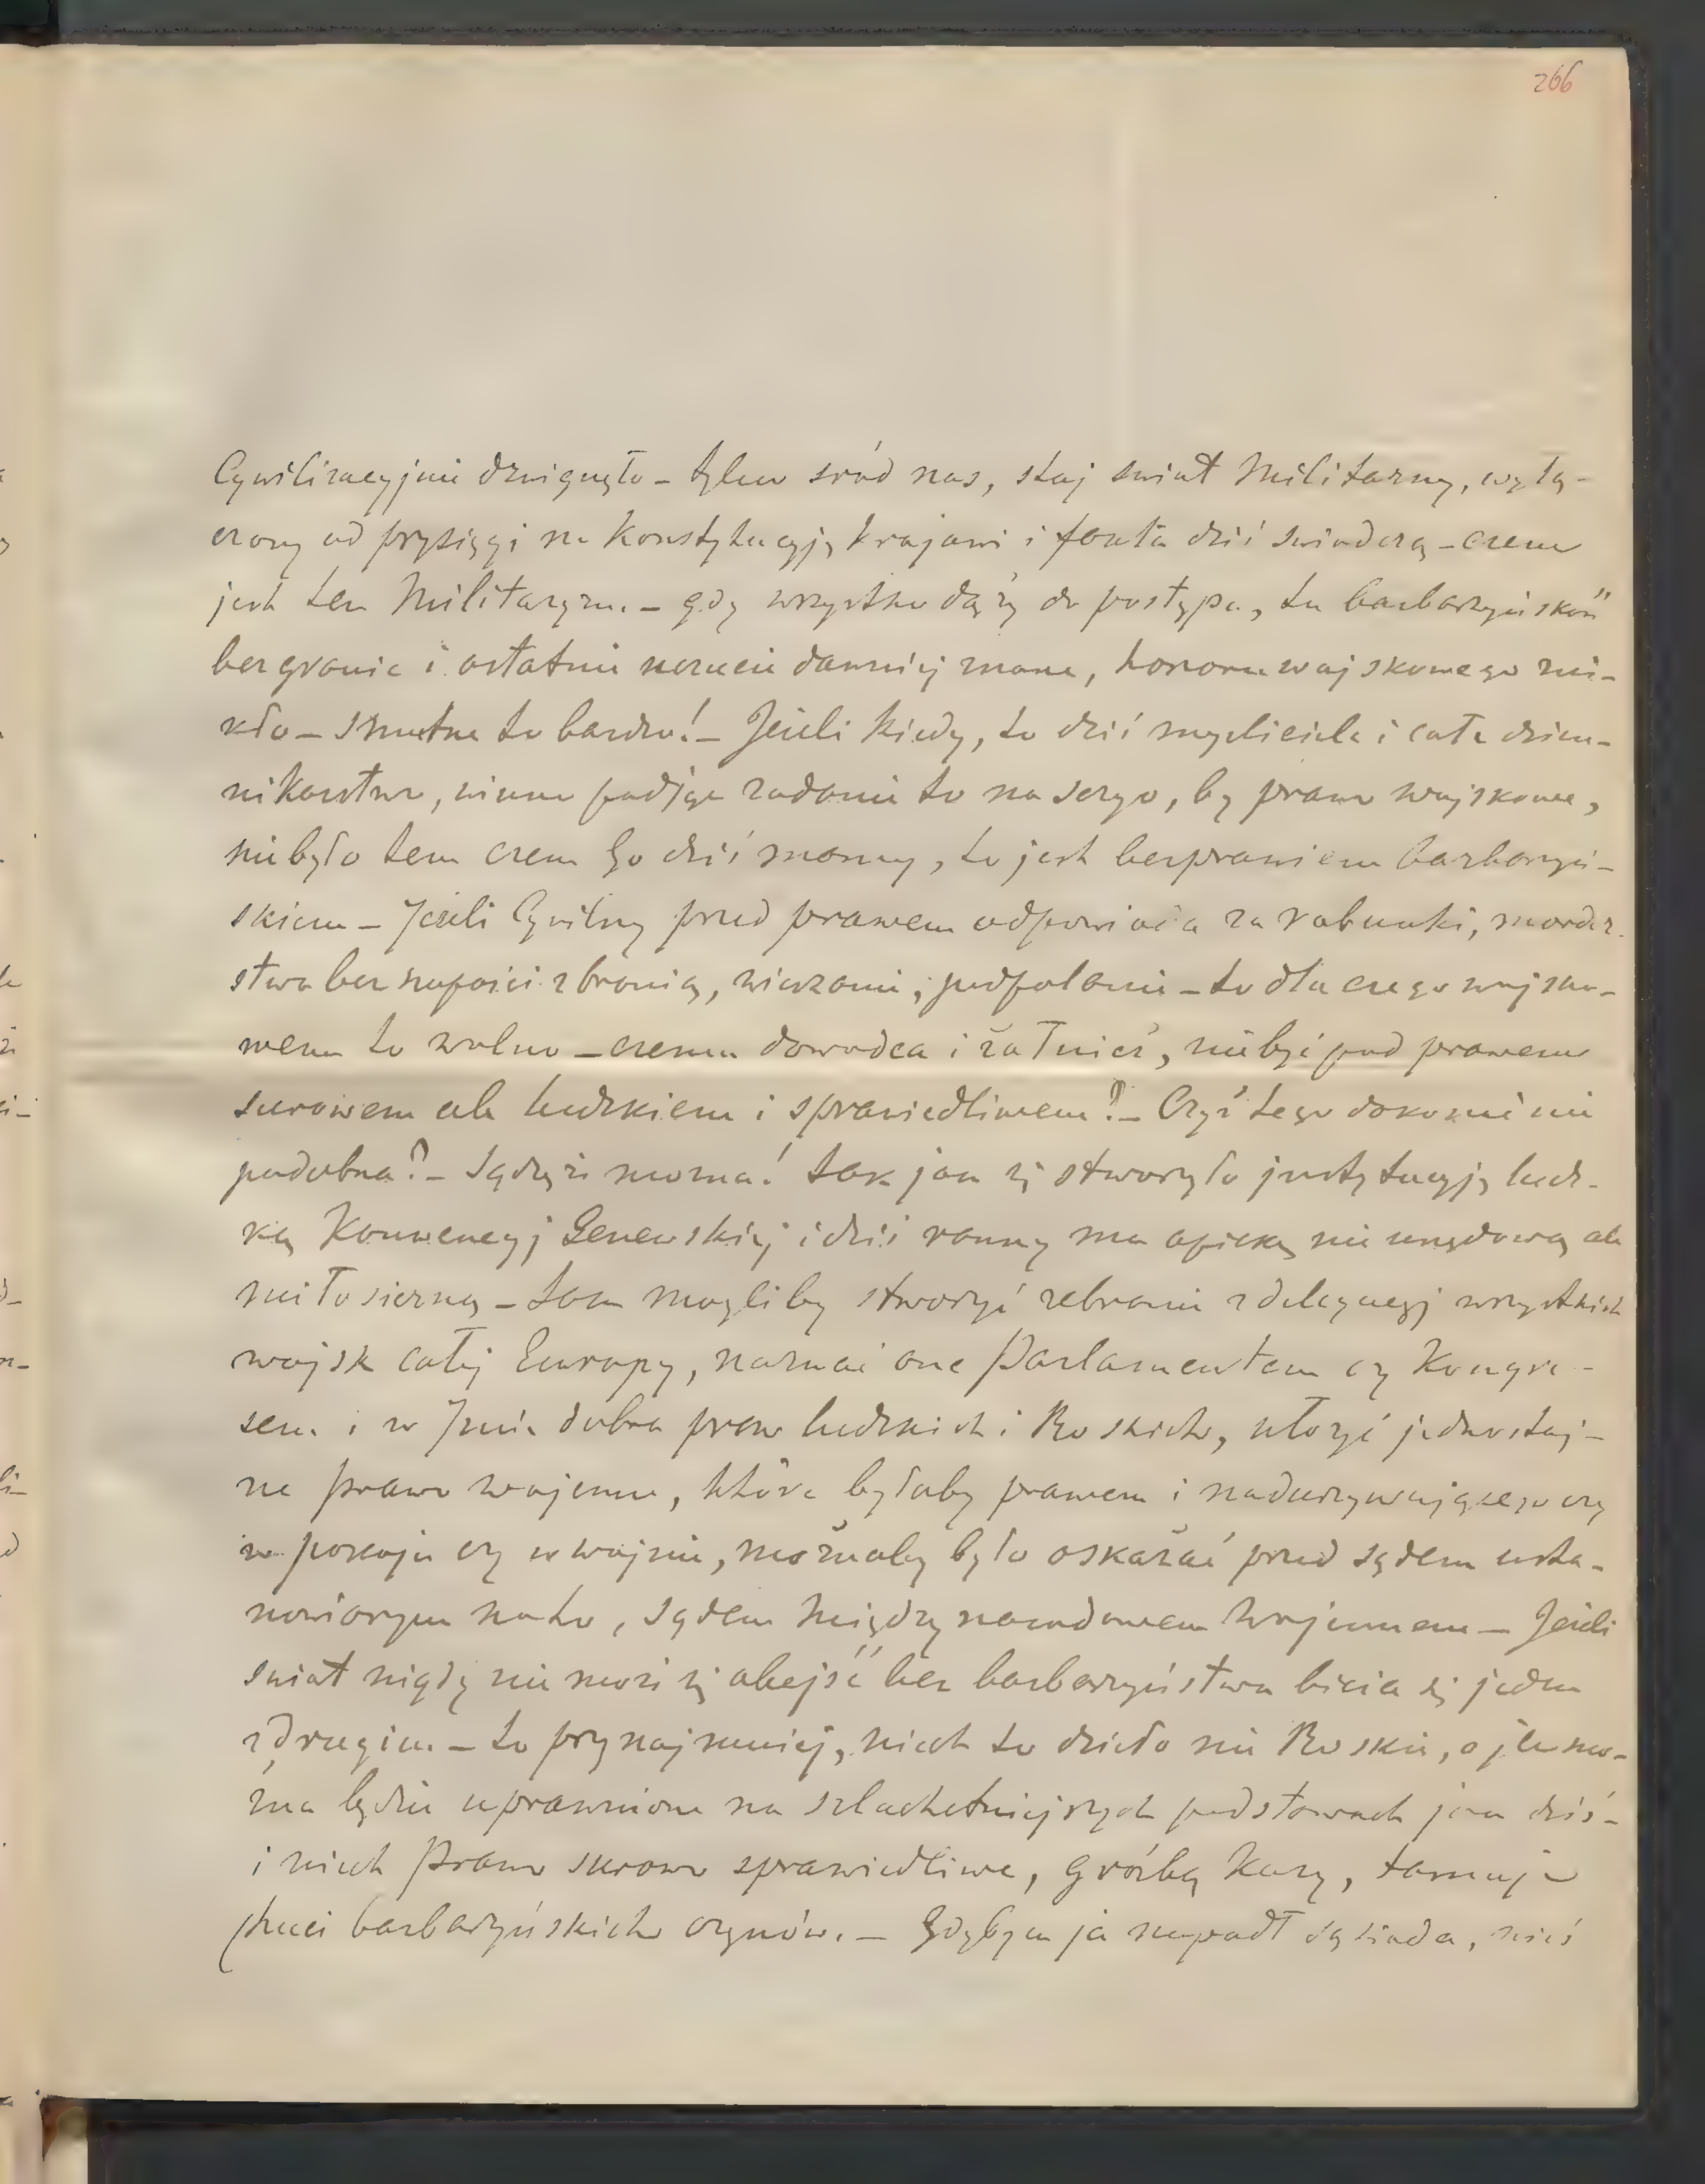 266
Cywilizacyjnie dzwignęło – tylko sród nas, stoj swiat Militarny, wyłą-
czony od przysięgi na Konstytucyję krajowi i fakta dziś swiadczą – czem
jest ten Militaryzm. – gdy wszystko dąży do postępu, tu barbarzyńskość
bez granic i ostatnie uczucie dawniej znane, honoru wojskowego zni-
kło – smutne to bardzo! – Jeżeli kiedy, to dziś mysliciele i całe dzien-
nikarstwo, winne podjąc zadanie to na seryo, by prawo wojskowe,
niebyło tem czem Go dziś znamy, to jest bezprawiem barbarzyń-
skiem – Jeżeli Cywilny przed prawem odpowiada za rabunki, morder-
stwa bez napaści z bronią, wieszanie, podpalanie – to dla czego wojsko-
wemu to wolno – czemu dowodca i żołnierz, niebyć pod prawem
surowem ale ludzkiem i sprawiedliwem? – Czyż tego dokonać nie
podobna? – Sądzę że można! tak jak się stworzyło instytucyję ludz-
ką Konwencyj Genewskiej i dziś ranny ma opiekę nie urzędową ale
miłosierną – tak mogliby stworzyć zebranie z delegacyj wszystkich
wojsk całej Europy, nazwać one Parlamentem czy Kongre-
sem i w Imie dobra praw ludzkich i Boskich, ułożyć jednostaj-
ne prawo wojenne, które byłoby prawem i nadużywającego czy
w pokoju czy w wojnie, możnaby było oskarżać przed sądem usta-
nowionym na to, sądem Między narodowem Wojennem – Jeżeli
swiat nigdy nie może się obejść bez barbarzyństwa bicia się jeden
z drugim – to przynajmniej, niech to dzieło nie Boskie, o ile mo-
żna będzie uprawnione na szlachetniejszych podstawach jak dziś –
i niech Prawo surowe sprawiedliwe, groźbą kary, tamuje
chuci barbarzyńskich czynów. – Gdybym ja napadł sąsiada,